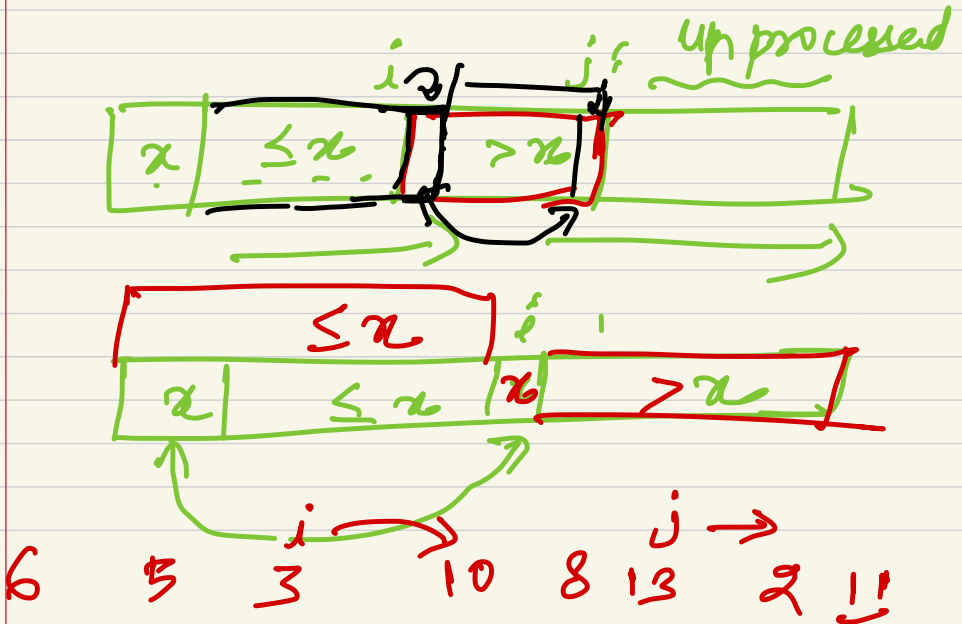 unprocessed
i j
x ≤ x > x
≤ x
i
x ≤ x x > x
i j
6 5 3 10 8 13 2 11